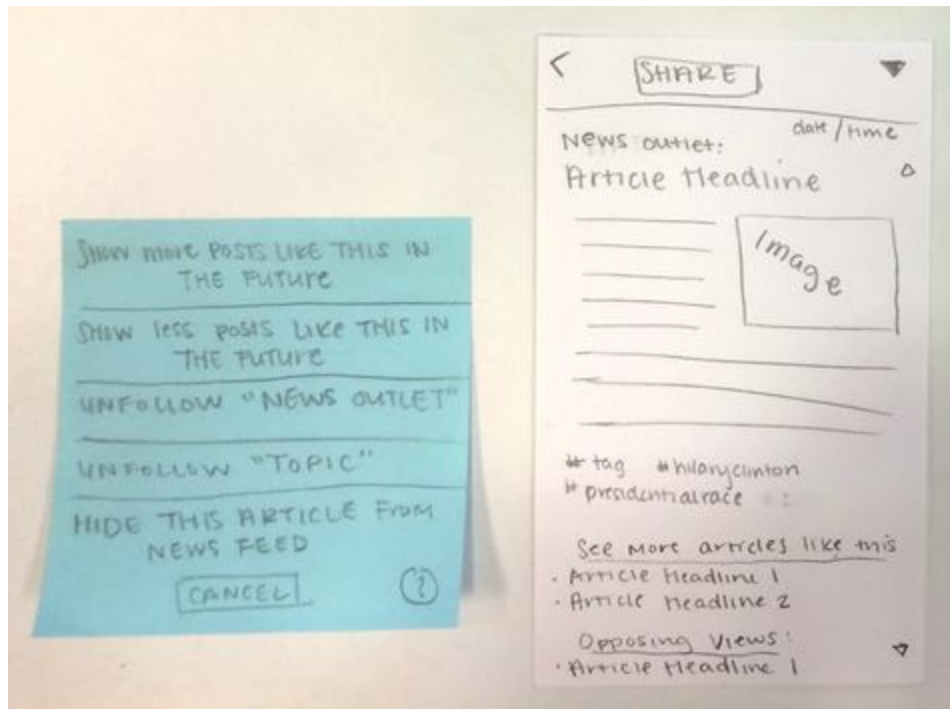 SHOW more POSTS LIKE THIS IN
THE FUTURE
SHOW less POSTS LIKE THIS IN
THE FUTURE
UNFOLLOW "NEWS OUTLET"
UNFOLLOW "TOPIC"
HIDE THIS ARTICLE FROM
NEWS FEED
CANCEL ?
< SHARE
date/time
News outlet:
Article Headline
Image
# tag #hilaryclinton
# presidentialrace
See More articles like this
· Article Headline 1
· Article Headline 2
Opposing Views:
· Article Headline 1